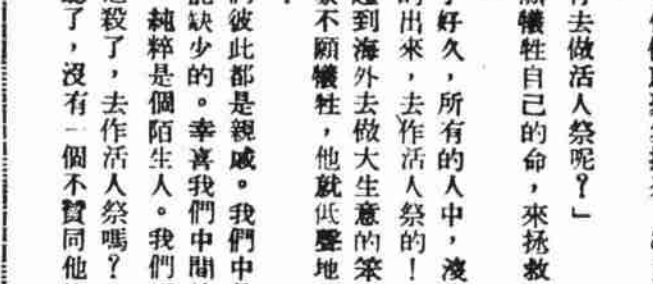 去做活人祭呢？」
犧牲自己的命，來拯救
好久，所有的人中，沒
的出來，去作活人祭的！
到海外去做大生意的笨
不願犧牲，他就低聲地
彼此都是親戚。我們中
缺少的。幸喜我們中間
純粹是個陌生人。我們
殺了，去作活人祭嗎？
了，沒有一個不贊同他